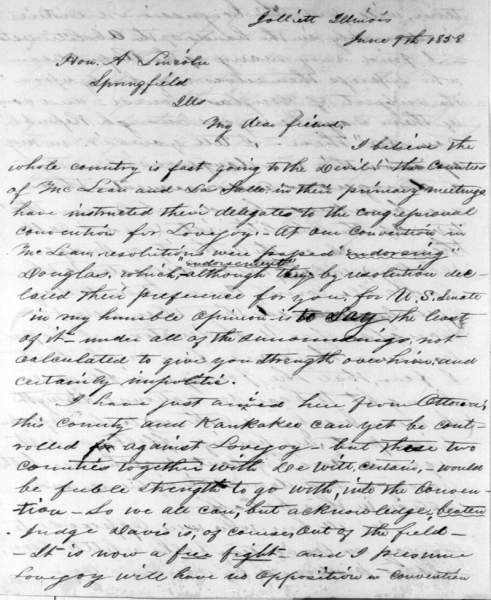 Jolliett Illinois
June 9th 1858
Hon. A Lincoln
Springfield
Ills
My dear friend.
I believe the
whole country is fast going to the Devil! the Counties
of McLean and La Salle, in their primary meetings
have instructed their delegates to the congressional
convention for Lovejoy. At our Convention in
McLean, resolutions were passed "endorsing"
Douglas, which endorsement, although they by resolution dec-
lared their preference for you, for U.S. Senate
in my humble opinion is to say the least
of it - under all of the surroundings, not
calculated to give you strength over him: and
certainly impolitic.
I have just arrived here from Ottowa;
this county and Kankakee can yet be cont-
rolled for against Lovejoy - but these two
counties together with De Witt, certain, - would
be feeble strength to go with, into the Conven-
tion - So we all can, but acknowledge, beaten
Judge Davis is, of course, out of the field -
- It is now a free fight - and I presume
Lovejoy will have no opposition in convention